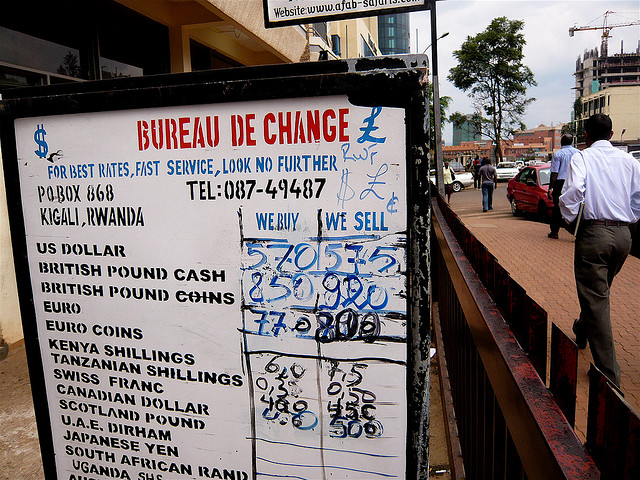 Website:www.afab-safaris.c
$ BUREAU DE CHANGE £
FOR BEST RATES, FAST SERVICE, LOOK NO FURTHER
P.O.BOX 868 TEL:087-49487
KIGALI, RWANDA
RWF
$ £ ¢
WE BUY WE SELL
US DOLLAR 570 575
BRITISH POUND CASH 850 920
BRITISH POUND COINS
EURO 770 800
EURO COINS
KENYA SHILLINGS 6,0 7.5
TANZANIAN SHILLINGS
SWISS FRANC
CANADIAN DOLLAR
SCOTLAND POUND
U.A.E. DIRHAM
JAPANESE YEN
SOUTH AFRICAN RAND
UGANDA SHS